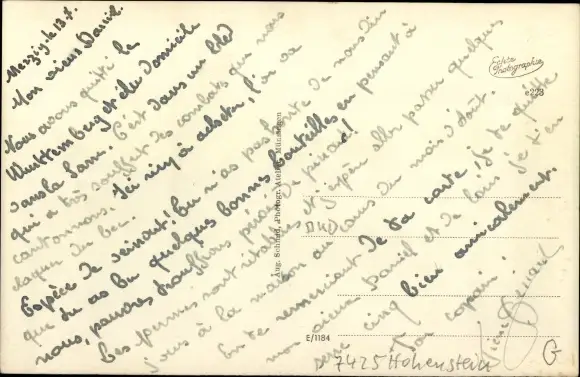 Merzig, le 13-7.
Mon vieux Daniel.
Nous avons quitté le
Wurttemberg et élu domicile
dans la Sarre. C'est dans un bled
qui a très souffert des combats que nous
cantonnons. Ici rien à acheter, l'on va
claquer du bec.
Espèce de veinard! tu n'as pas honte de nous dire
que tu as bu quelques bonnes bouteilles en pensant à
nous, pauvres troufions privés de pinard!
Les permes sont rétablies et j'espère aller passer quelques
jours à la maison au cours du mois d'août.
En te remerciant de ta carte, je te quitte
mon vieux Daniel et de loin je t'en
serre cinq bien amicalement.
Ton copain.
Pierre
Echte
Photographie
e223
Aug. Schneid, Photogr. Atelier, Münsingen
E/1184
7425 Hohenstein
G